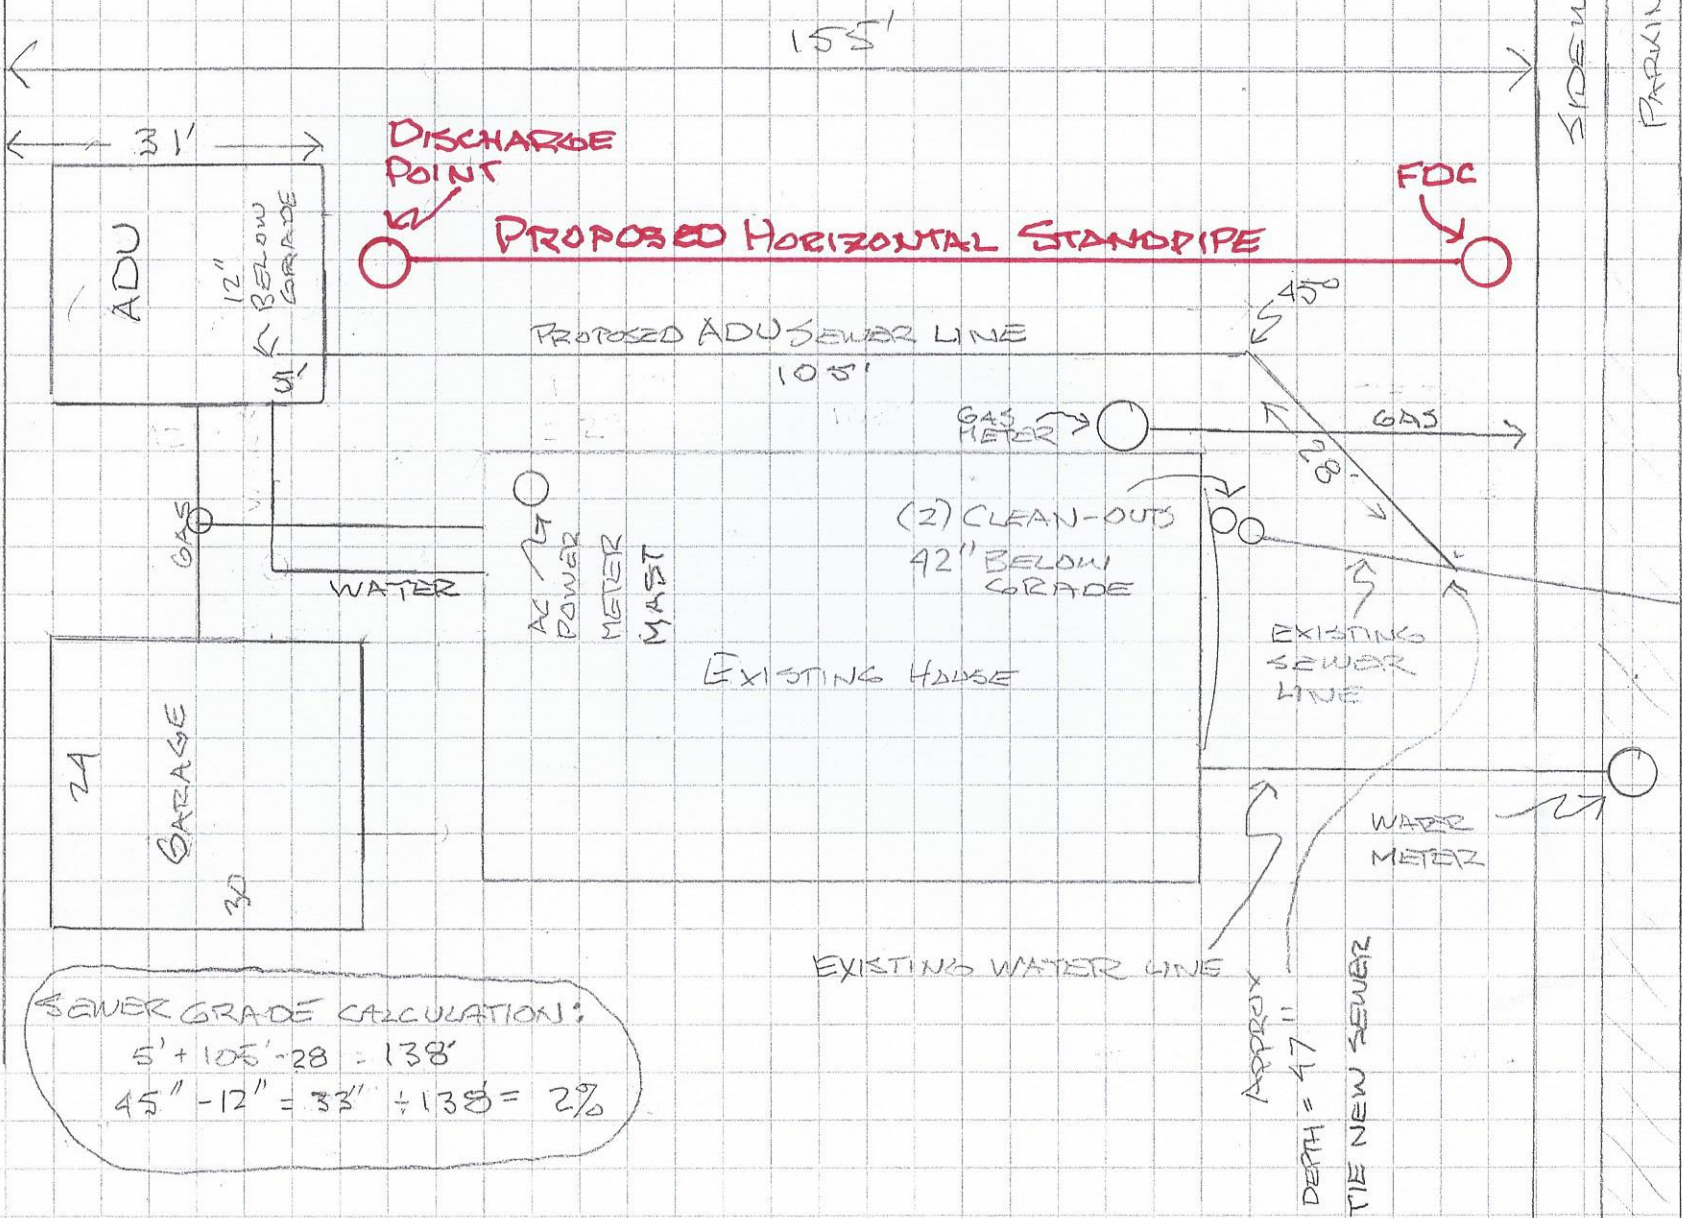 155'
SIDEW
PARKIN
31'
DISCHARGE
POINT
FDC
PROPOSED HORIZONTAL STANDPIPE
ADU
12"
BELOW
GRADE
5'
45°
PROPOSED ADU SEWER LINE
105'
GAS
METER
GAS
28'
(2) CLEAN-OUTS
42" BELOW
GRADE
GAS
WATER
AC
POWER
METER
MAST
EXISTING HOUSE
EXISTING
SEWER
LINE
24
GARAGE
30
WATER
METER
EXISTING WATER LINE
APPROX
DEPTH = 47"
TIE NEW SEWER
SEWER GRADE CALCULATION:
5' + 105' - 28 = 138'
45" - 12" = 33" ÷ 138 = 2%